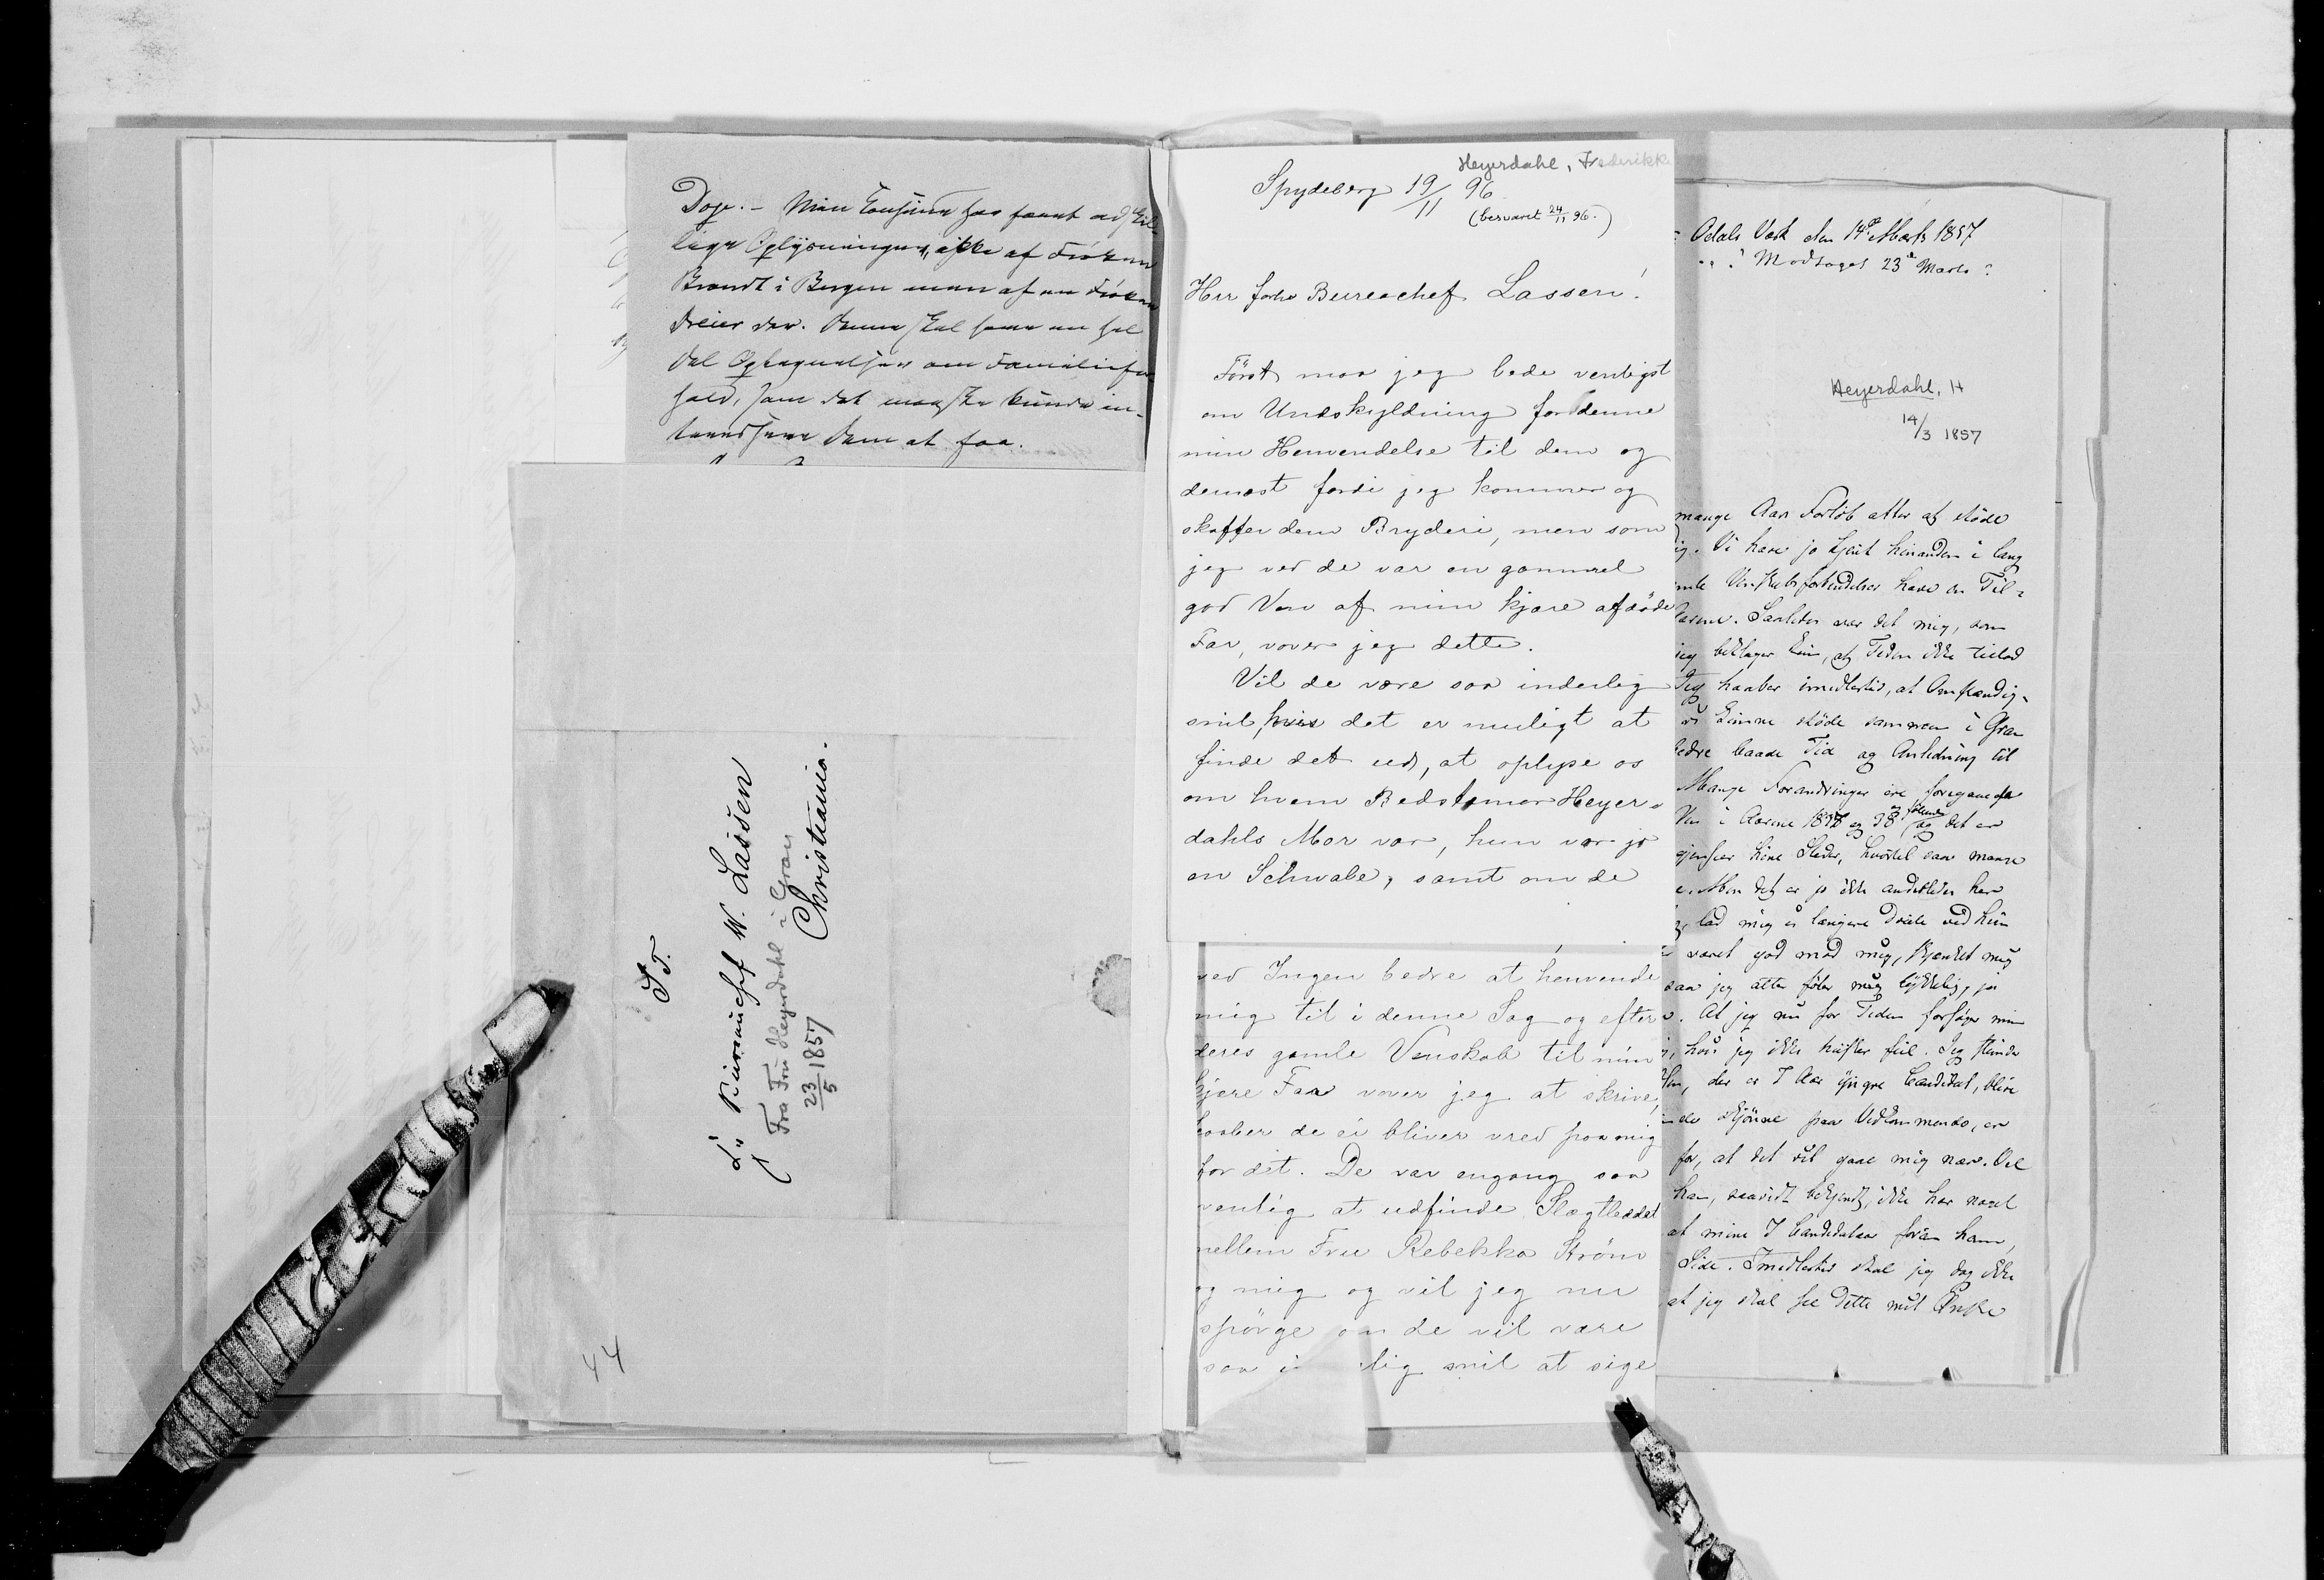 Doge. – Min Cousine har faaet adskil-
lige Oplysninger, ikke af Frøken
Brandt i Bergen men af en Frøken
Dreier der. Denne skal have en hel
Del Optegnelser om Familiefor
hold, som det maaske kunde in-
teressere Dem at faa.
S. T.
Hr. Bureauchef W. Lassen
Christiania.
Fra Fru Heyerdahl i Gran
23/5 1857
44
Heyerdahl, Frederikke
Spydeberg 19/11 96
(besvaret 24/11 96.)
Herr forhv Bureachef Lassen!
Først maa jeg bede venligst
om Undskyldning for denne
min Henvendelse til dem og
dernæst fordi jeg kommer og
skaffer dem Bryderi, men som
jeg ved de var en gammel
god Ven af min kjære afdøde
Far, vover jeg dette.
Vil de være saa inderlig
snil, hvis det er muligt at
finde det ud, at oplyse os
om hvem Bedstemor Heyer-
dahls Mor var, hun var jo
en Schwabe, samt om de
ved Ingen bedre at henvende
mig til i denne Sag og efter
deres gamle Venskab til min
kjære Far vover jeg at skrive,
haaber de ei bliver vred paa mig
for det. De var engang saa
venlig at udfinde Slægtleddet
mellem Frue Rebekka Strøm
og mig og vil jeg nu
spørge om de vil være
saa i lig snil at sige
Odals Værk den 14de Marts 1857
Modtaget 23de Marts
Heyerdahl, H
14/3 1857
mange Aars Forløb atter at støde
ig. Vi have jo kjent hinanden i lang
mle Venskabsforbindelser have en Til-
Saaledes var det mig, som
jeg beklager kun, at Tiden ikke tillod
Jeg haaber imidlertid, at Omstændig-
vi kunne støde sammen i Gran
bedre baade Tid og Anledning til
Mange Forandringer ere foregaaede
i Aarene 1837 og 38 og det er
hine Steder, hvortil saa mange
Men det er jo ikke anderledes her
lad mig ei længere dvæle ved hin
været god mod mig, skjænket mig
saa jeg atter føler mig lykkelig, ja
. At jeg nu for Tiden forsøger min
hvis jeg ikke husker feil. Jeg
der er 7 Aar yngre Candidat, blive
nde skjønne paa Vedkommende, er
for, at det vil gaae mig nær. Vel
han, saavidt bekjendt, ikke har naaet
at mine 7 Candidataar foran ham,
Side. Imidlertid skal jeg dog ikke
at jeg skal see dette mit Ønske